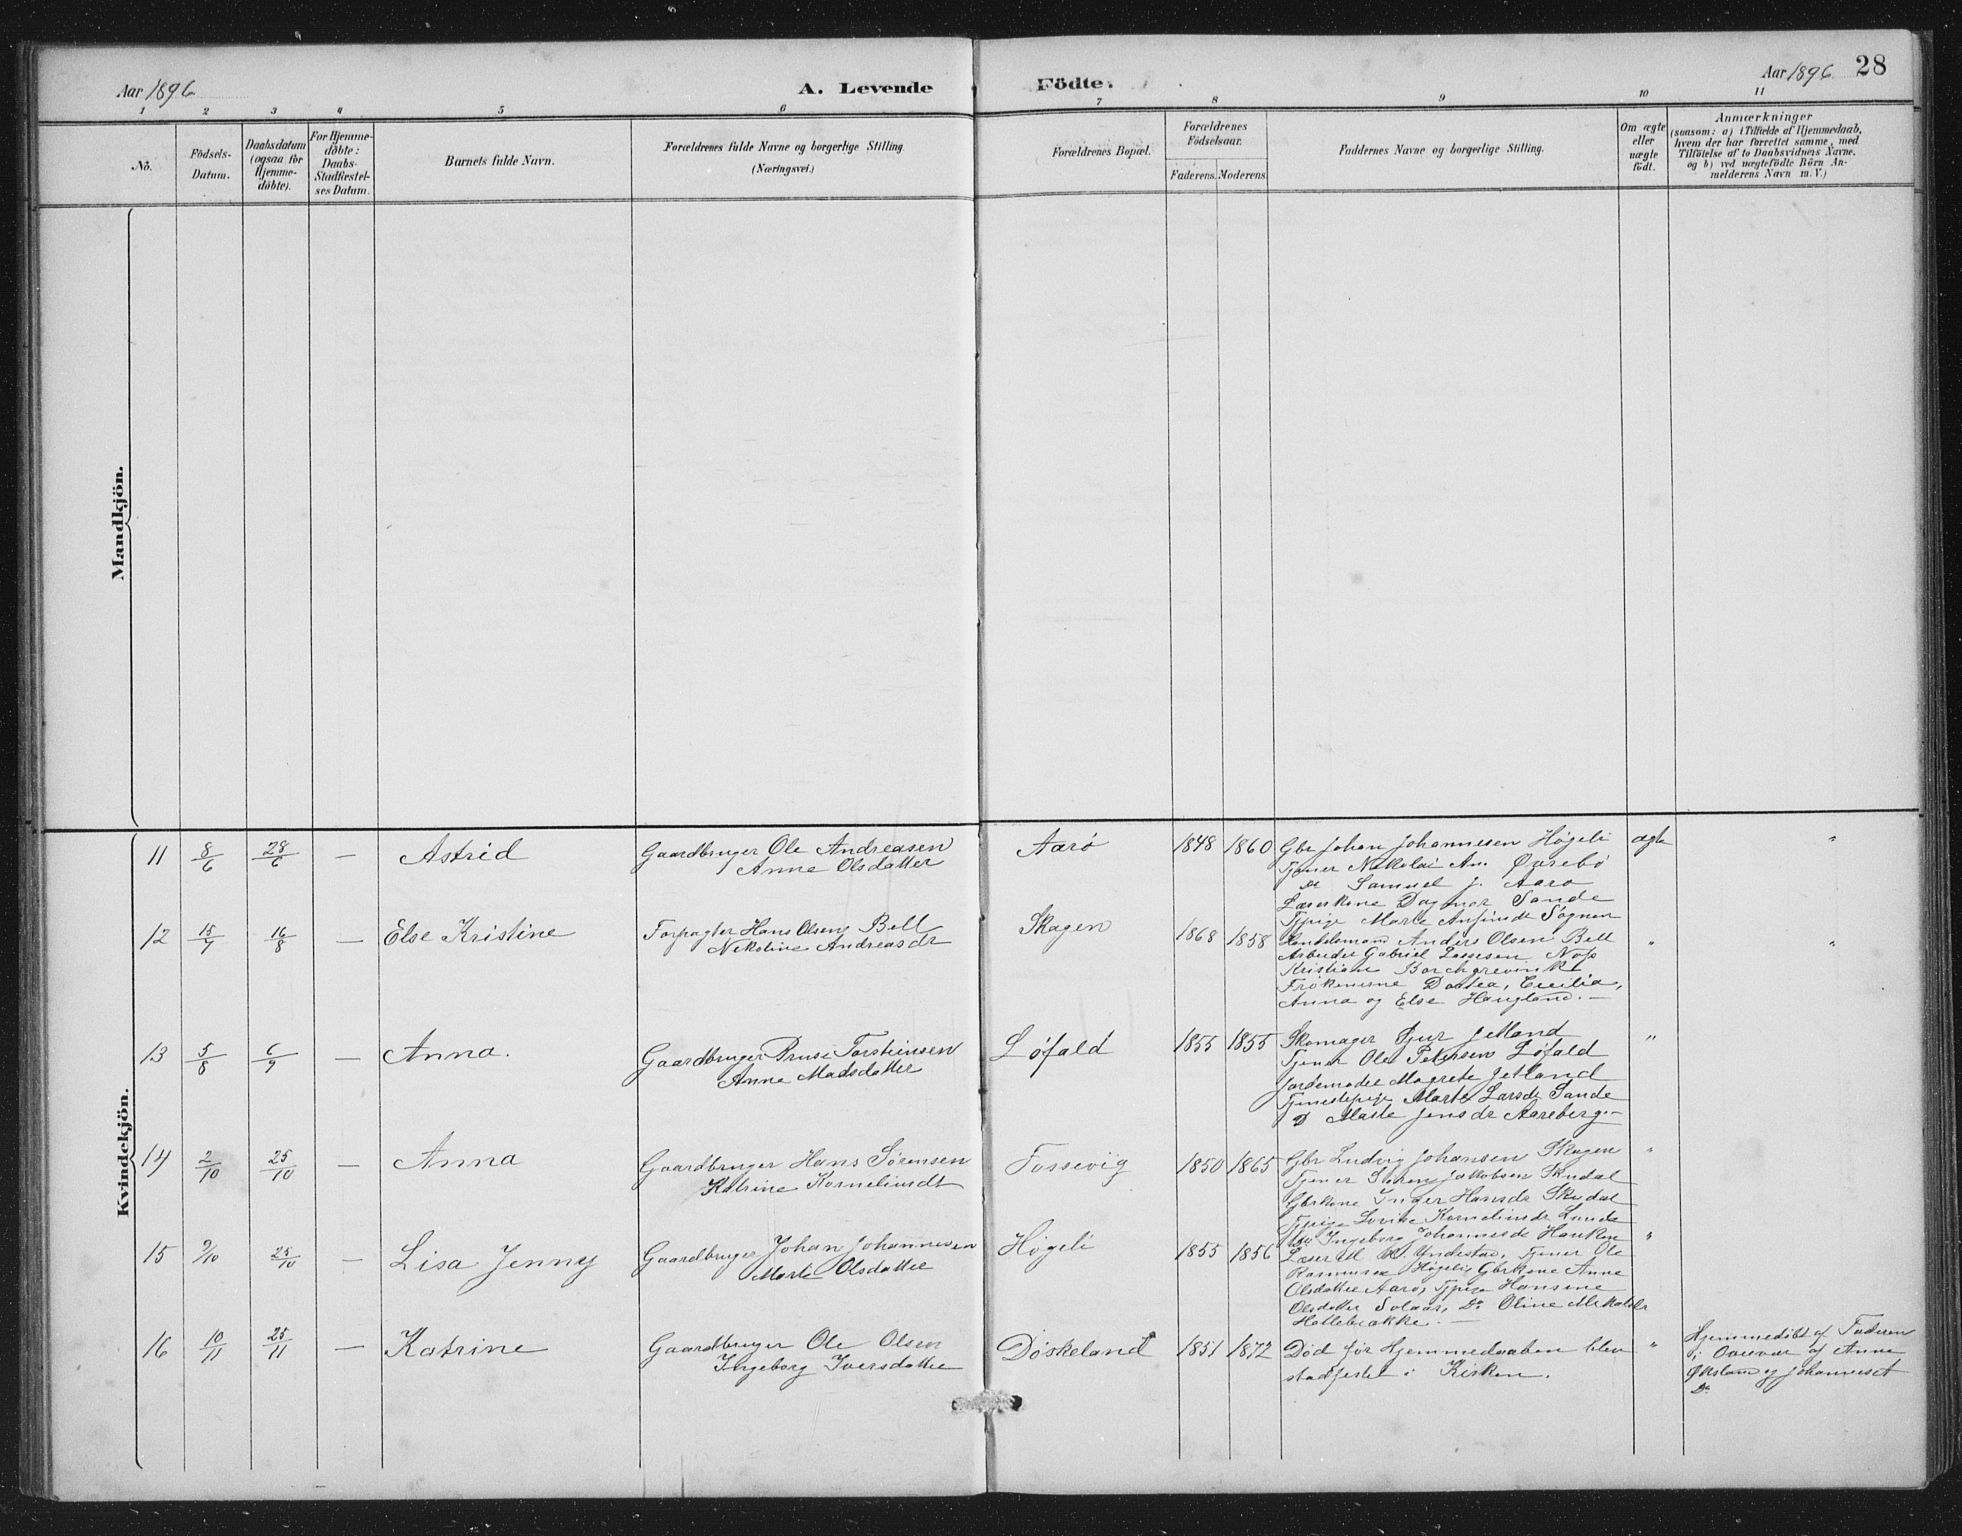 Aar 1896
A. Levende
Födte.
Aar 1896
28
1 2 3 4 5 6 7 8 9 10 11
No.
Födsels-Datum.
Daabsdatum (ogsaa för Hjemme-döbte).
For Hjemme-döbte: Daabs-Stadfæstel-ses Datum.
Barnets fulde Navn.
Forældrenes fulde Navne og borgerlige Stilling
(Næringsvei.)
Forældrenes Bopæl.
Forældrenes Födselsaar.
Faderens. Moderens.
Faddernes Navne og borgerlige Stilling.
Om ægte eller uægte födt.
Anmærkninger
(saasom: a) i Tilfælde af Hjemmedaab,
hvem der har forrettet samme, med
Tilföielse af to Daabsvidners Navne.
og b) ved uægtefödte Börn An-
melderens Navn m. V.)
Mandkjön.
Kvindekjön.
11 8/6 28/6 — Astrid
Gaardbruger Ole Andreasen
Anne Olsdatter
Aarø 1848 1860
Gbr Johan Johannesen Høgeli
Tjener Nikolai An. Øvrebø
Do Samuel J. Aarø
Læserkone Dagmar Sande
Tjpige Marte Ansfindr Søgnen
ægte "
12 15/7 16/8 — Else Kristine
Forpagter Hans Olsen Bell
Nikoline Andreasdr
Skagen 1868 1858
Handelsmand Anders Olsen Bell
Arbeider Gabriel Lassesen
Kristian Borchgrevink
Frøkenerne Dortea, Cecilia,
Anna og Else Haugland. —
" "
13 5/8 6/9 — Anna.
Gaardbruger Torsteinsen
Anne Madsdatter
Løfald 1855 1855
Skomager Jetland
Tjener Ole Petersen Løfald
Jordemoder Magrete Jetland
Tjenestepige Marte Larsdr Sande
D Marte Jensdr Aareberg. —
"
14 2/10 25/10 — Anna
Gaardbruger Hans Sørensen
Katrine Korneliusdt
Fossevig 1850 1865
Gbr Ludvig Johansen Skagen
Tjener Søren Jakobsen Skudal
Gbrkone Inger Hansdr Skudal
Tjpige Lovise Korneliusdr Lunde
Do Ingeborg Johannesdr Hauken
"
15 9/10 25/10 — Lisa Jenny
Gaardbruger Johan Johannesen
Marte Olsdatter
Høgeli 1855 1856
Lærer M. Yndestad, Tjener Ole
Rasmussen Høgeli, Gbrkone Anne
Olsdatter Aarø, Tjpige Hansine
Olsdatter Solaas, Do Oline Mikalsdr
Hollebrække. —
"
16 10/11 25/11 — Katrine
Gaardbruger Ole Olsen
Ingeborg Iversdatter
Døskeland 1851 1872
Død før Hjemmedaaben blev
stadfestet i Kirken.
"
Hjemmedøbt af Faderen
i Overvær af Anne
og Johanneset
Do